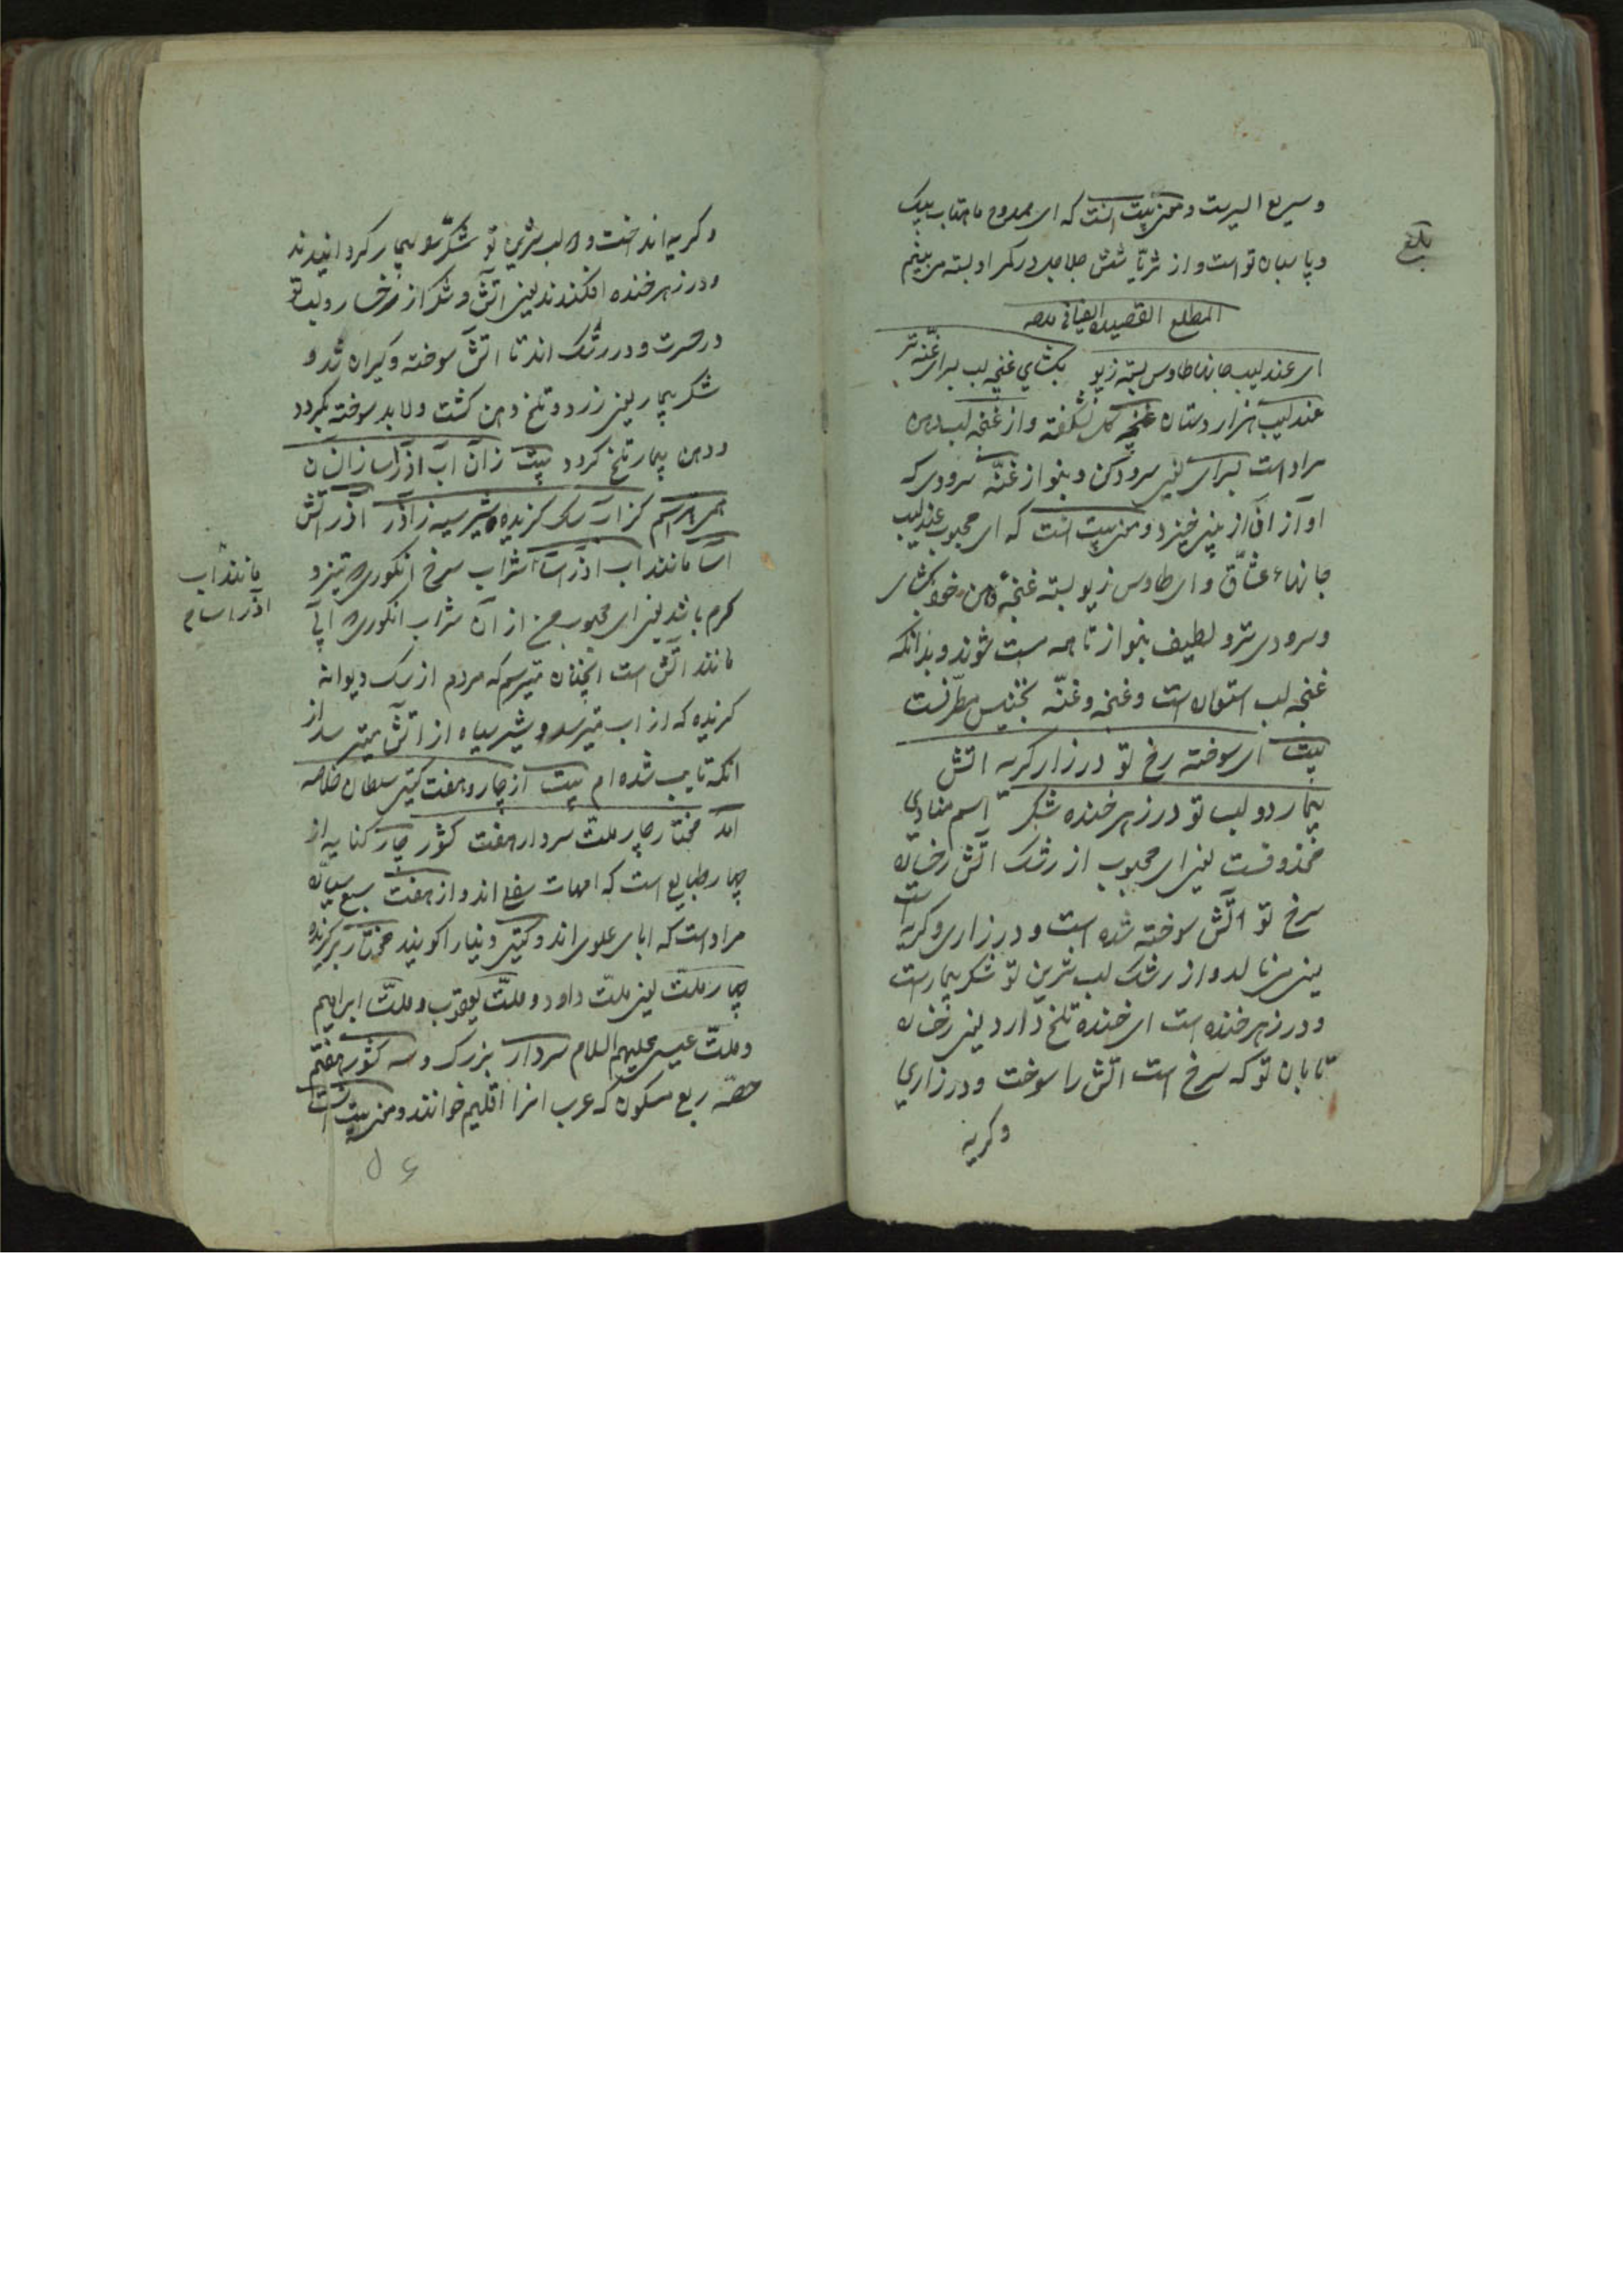 و سریع السیرست و معنی بیت آنست که ای ممدوح ماهتاب پیک
و پاسبان تو است و از ثریّا شش جلاجل در کمر او بسته می بینم
المطلع القصیده ایضا فی مدحه
ای عندلیب جانها طاوس بسته زیور بگشای غنچه لب بسرای غنّه تر
عندلیب هزار دستان غنچه گل نشگفته و از غنچه لب دهن
مراد است بسرای یعنی سرود کن و بنواز غنّه سرودی که
آواز آن از بینی خیزد و معنی بیت آنست که ای محبوب عندلیب
جانهاء عشّاق و ای طاوس زیور بسته غنچهٔ دهن خود بگشای
و سرودی تر و لطیف بنواز تا همه مست شوند و بدانکه
غنچه لب استعاره است و غنچه و غنّه تجنیس مطرّفست
بیت ای سوخته رخ تو در زار گریه آتش
بیمار دو لب تو در زهر خنده شکر اسم منادی
محذوفست یعنی ای محبوب از رشک آتش رخساره
سرخ تو آتش سوخته شده است و در زاری و گریه است
یعنی می نالد و از رشک لب شرین تو شکر بیمارست
و در زهر خنده است ای خنده تلخ دارد یعنی رخساره
تابان تو که سرخ است آتش را سوخت و در زاری
و گریه
بلغ
و گریه انداخت و لب شرین تو شکر را بیمار گردانیدند
و در زهر خنده افکندند یعنی آتش و شکر از رخسار و لب تو
در حسرت و در رشک اند تا آتش سوخته و گریان شد و
شکر بیمار یعنی زرد و تلخ دهن گشت و لابد سوخته بگردد
و دهن بیمار تلخ گردد بیت زان آب آذرآسا زانسان
همی هراسم کز آب سگ گزیده و شیر سیه ز آذر آذر آتش
آسا مانند آب آذرآسا شراب سرخ انگوری تیز و
گرم باشد یعنی ای محبوب من از آن شراب انگوری آبی
مانند آتش است آنچنان میترسم که مردم از سگ دیوانه
گزیده که از آب میترسد و شیر سیاه از آتش میترسد از
آنکه تایب شده ام بیت از چار و هفت گیتی سلطان خلاصه
آمد مختار چار ملّت سردار هفت کشور چار کنایه از
چهار طبایع است که امهات سفلی اند و از هفت سبع سیاره
مراد است که ابای علوی اند و گیتی دنیا را گویند مختار برگزیده
چهار ملّت یعنی ملّت داود و ملّت یعقوب و ملّت ابراهیم
و ملّت عیسی علیهم السلام سردار بزرگ و سه کشور هفتم
حصّه ربع مسکون که عرب آنرا اقلیم خوانند و معنی بیت آنست
مانند آب
آذر اسام